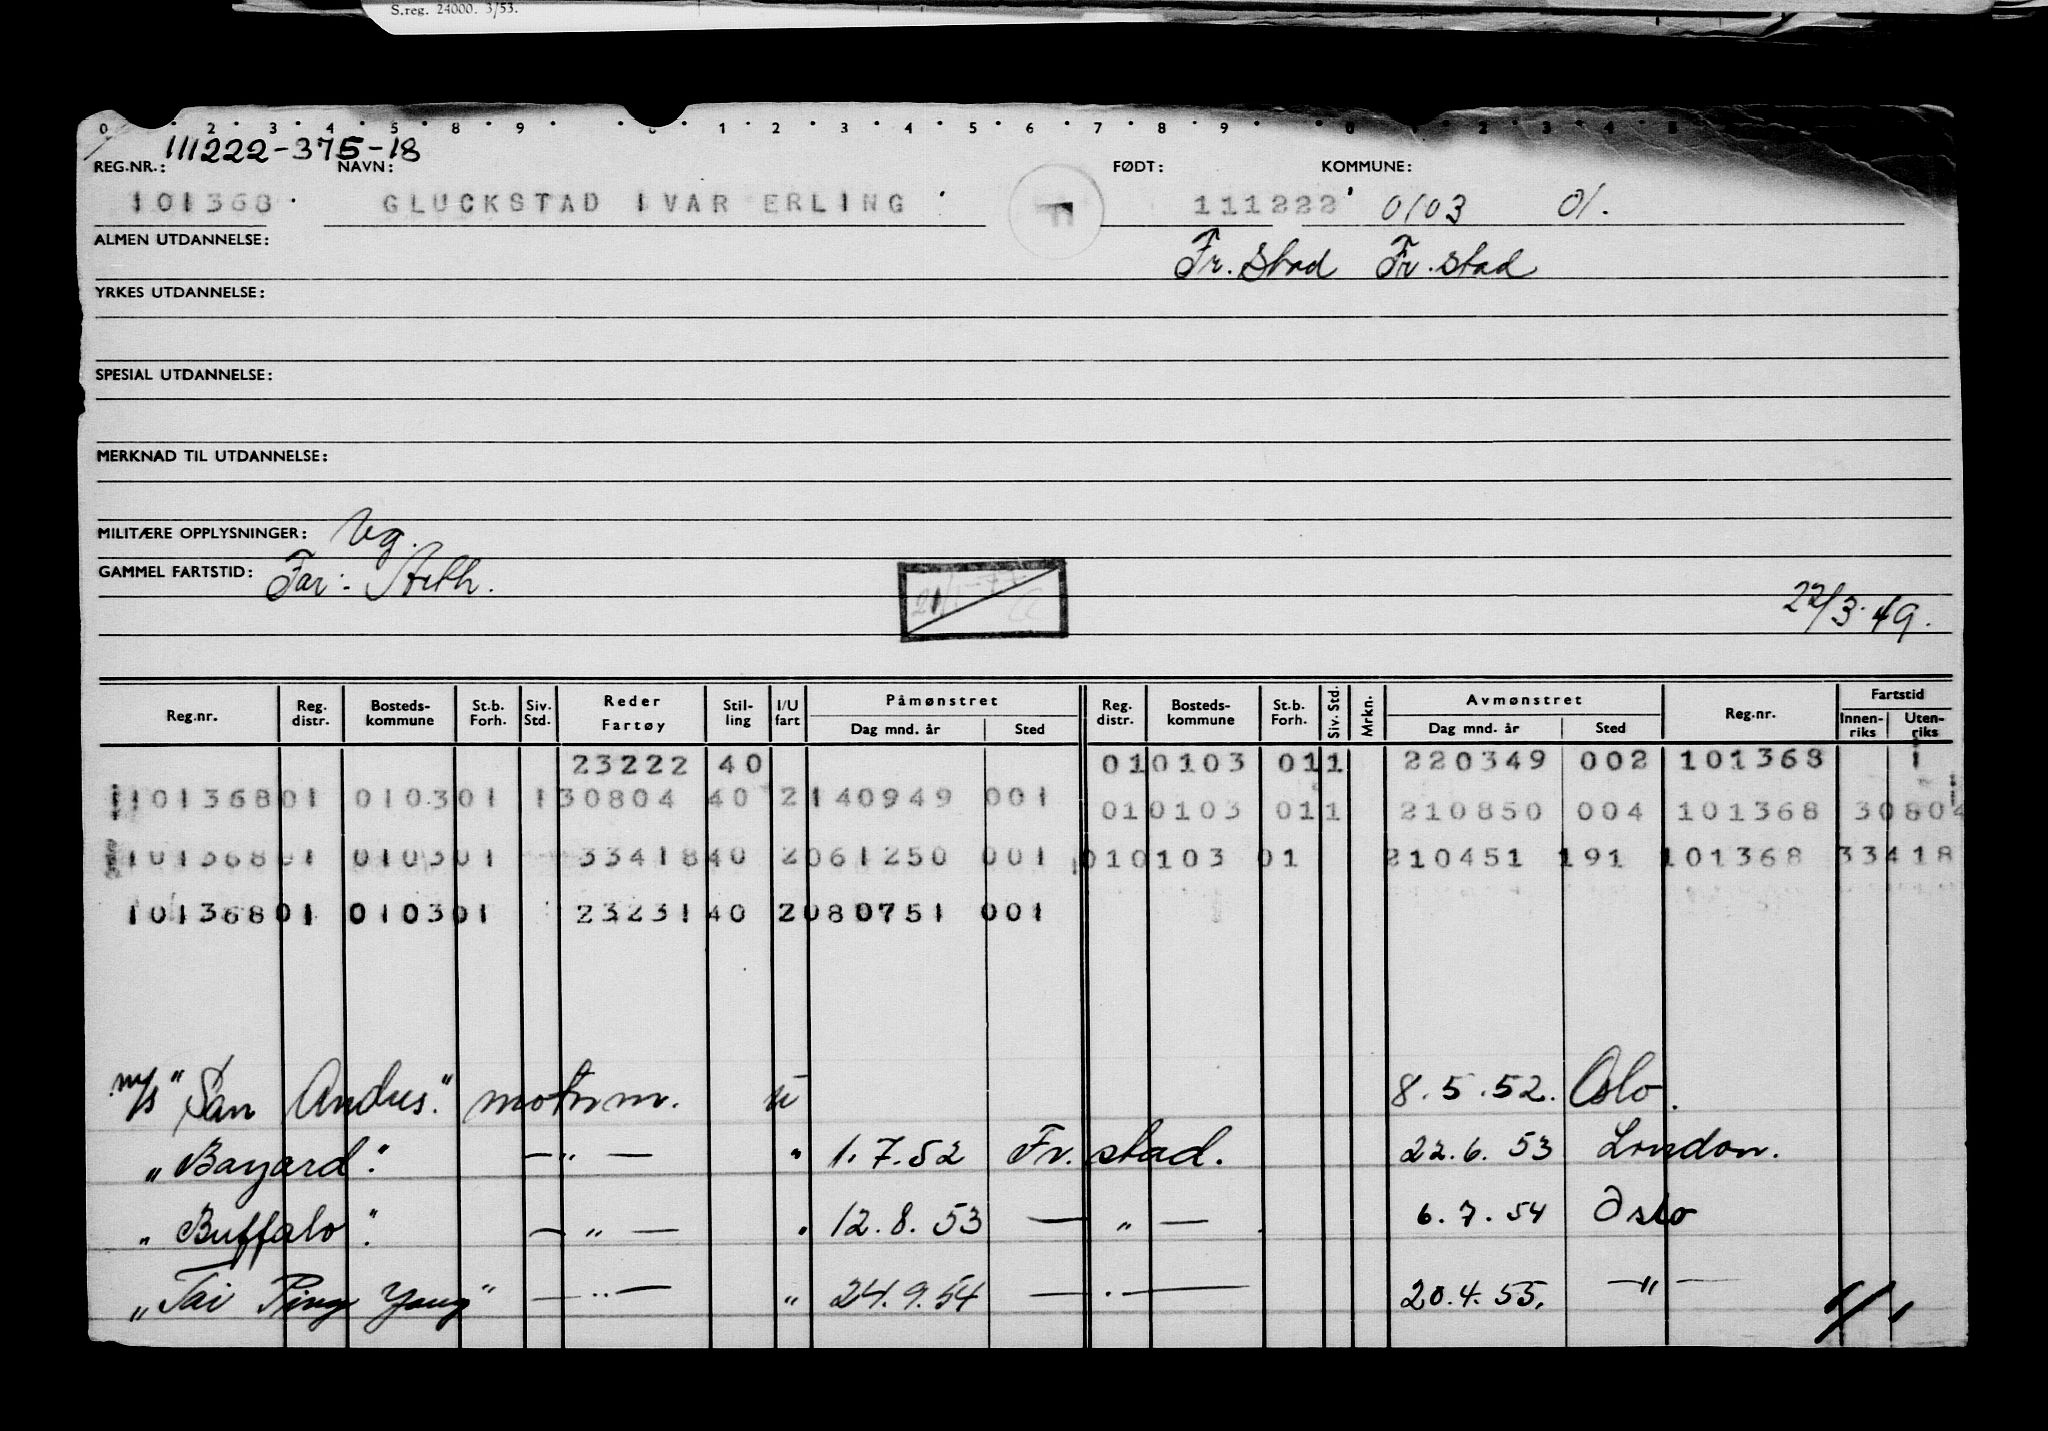 S.reg. 24000. 3/53.
0 2 3 4 5 8 9 0 1 2 3 4 5 6 7 8 9 0 2 3 4 5
111222-375-18
REG.NR.: NAVN: FØDT: KOMMUNE:
101368 GLUCKSTAD IVAR ERLING 111222 0103 01.
ALMEN UTDANNELSE: Fr.stad Fr.stad
YRKES UTDANNELSE:
SPESIAL UTDANNELSE:
MERKNAD TIL UTDANNELSE:
MILITÆRE OPPLYSNINGER: Ug.
GAMMEL FARTSTID: Far:
22/3-49.
Reg.nr. Reg. distr. Bosteds-kommune St.b. Forh. Siv. Std. Reder Fartøy Stil-ling I/U fart Påmønstret Dag mnd. år Sted Reg. distr. Bosteds-kommune St.b. Forh. Siv. Std. Mrkn. Avmønstret Dag mnd. år Sted Reg.nr. Fartstid Innen-riks Uten-riks
23222 40 010103 011 220349 002 101368 1
10136801 010301 130804 40 2140949 001 010103 011 210850 004 101368 30804
10136801 010301 33418 40 2061250 001 010103 01 210451 191 101368 33418
10136801 010301 23231 40 2080751 001
m/s "San Andres." motorm. u 8.5.52. Oslo.
" "Bayard". —"— " 1.7.52 Fr.stad. 22.6.53 London.
" "Buffalo". —"— " 12.8.53 —"— 6.7.54 Oslo
" "Tai Ping Yang" —"— " 24.9.54 —"— 20.4.55. —"—